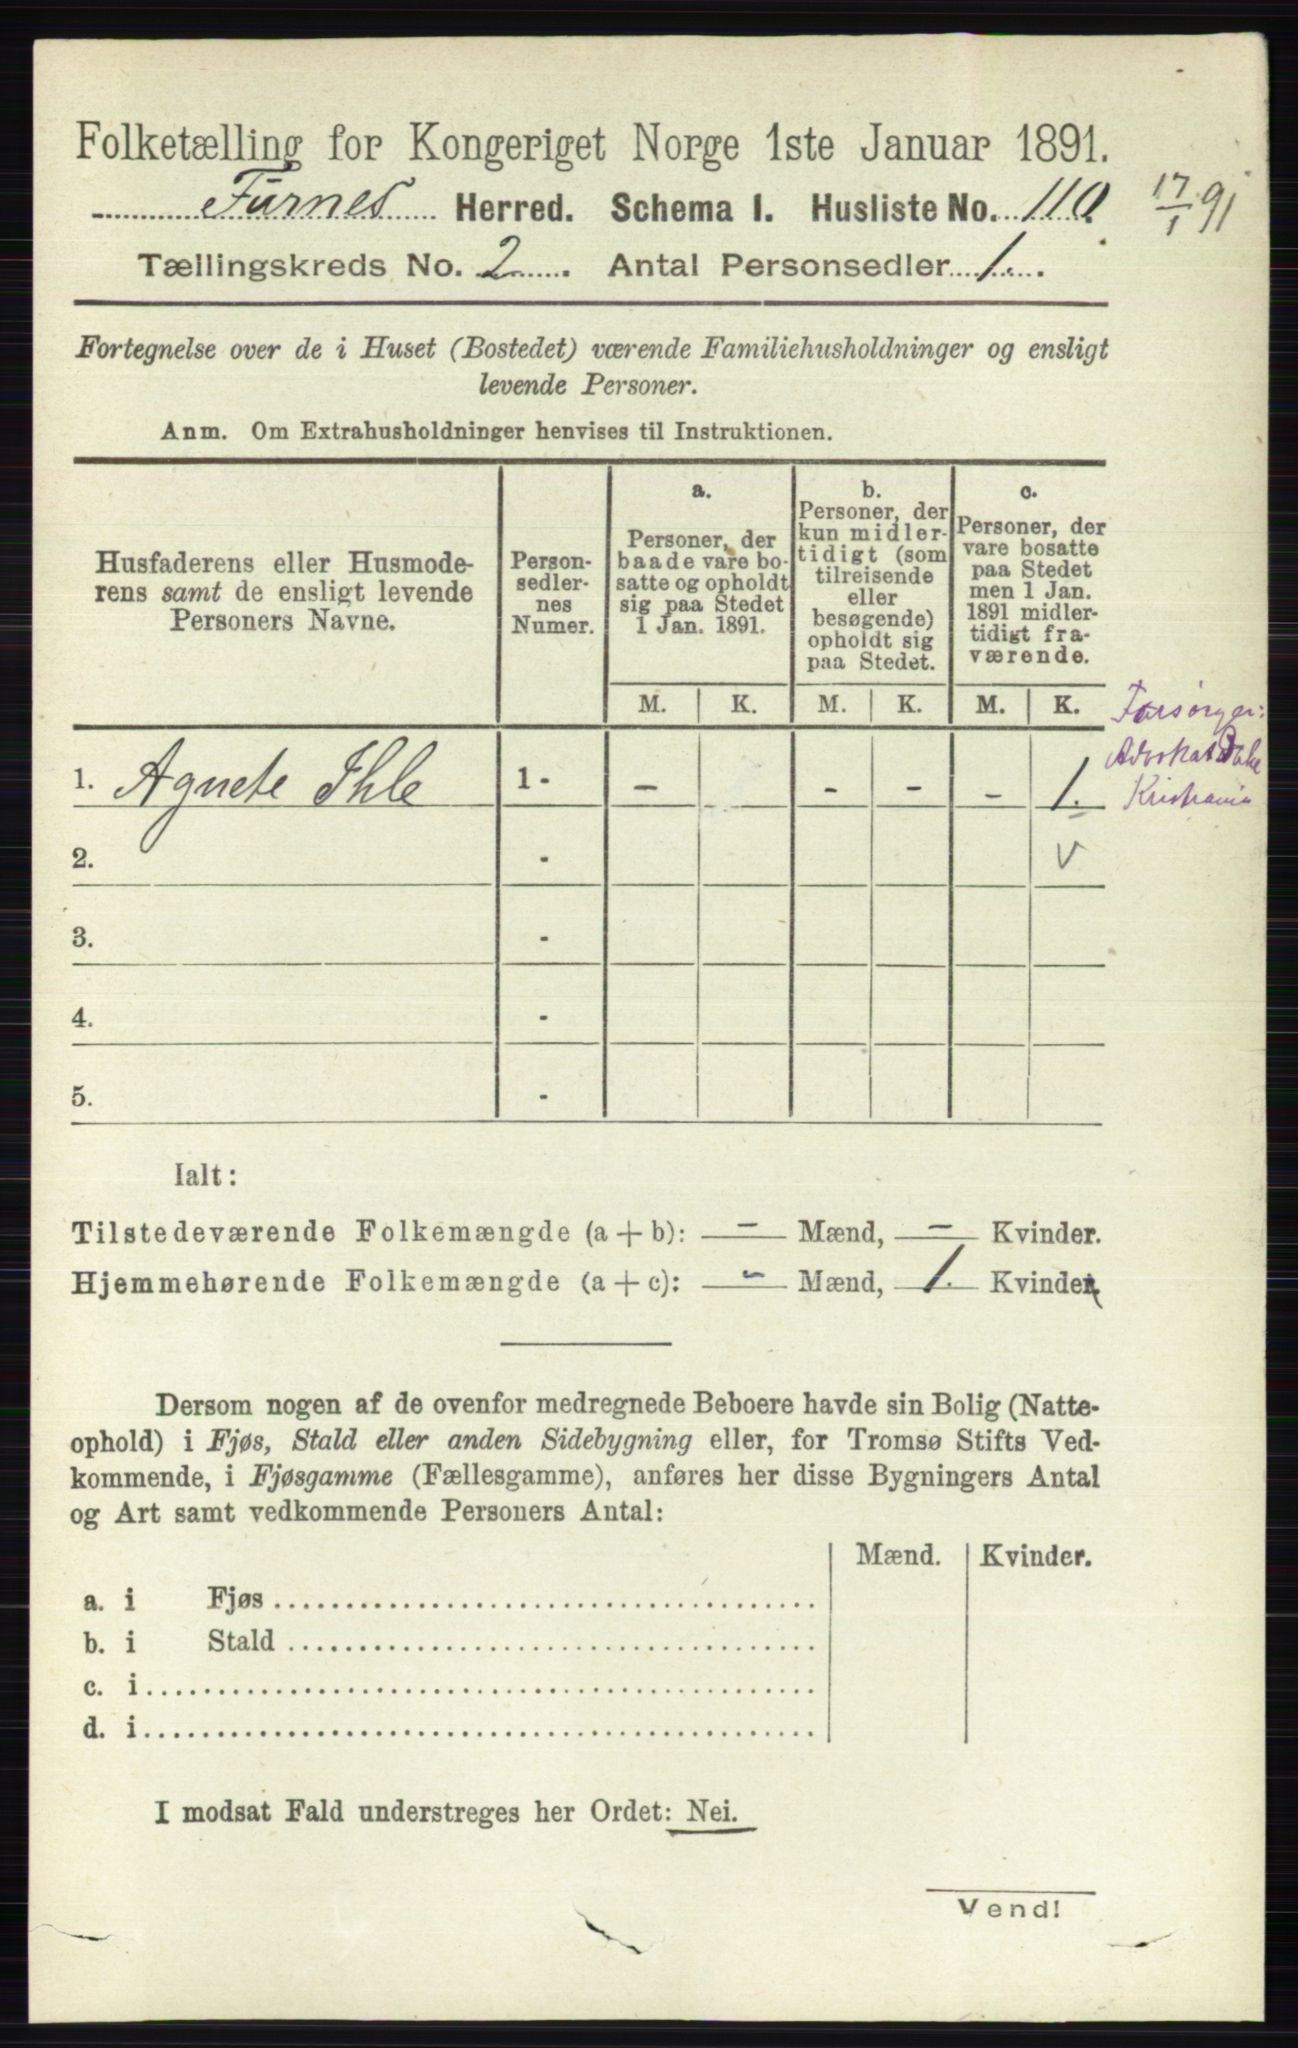 Folketælling for Kongeriget Norge 1ste Januar 1891.
Furnes Herred. Schema I. Husliste No. 110. 17/1 91
Tællingskreds No. 2. Antal Personsedler 1.
Fortegnelse over de i Huset (Bostedet) værende Familiehusholdninger og ensligt
levende Personer.
Anm. Om Extrahusholdninger henvises til Instruktionen.
Husfaderens eller Husmode-
rens samt de ensligt levende
Personers Navne.
Person-
sedler-
nes
Numer.
a.
Personer, der
baade vare bo-
satte og opholdt
sig paa Stedet
1 Jan. 1891.
b.
Personer, der
kun midler-
tidigt (som
tilreisende
eller
besøgende)
opholdt sig
paa Stedet.
c.
Personer, der
vare bosatte
paa Stedet
men 1 Jan.
1891 midler-
tidigt fra-
værende.
M. K. M. K. M. K.
Forsørger:
Advokat
Kristiania
1. Agnete Ihle 1 - - - - - 1.
2. - V
3. -
4. -
5. -
Ialt:
Tilstedeværende Folkemængde (a + b): - Mænd, - Kvinder.
Hjemmehørende Folkemængde (a + c): - Mænd, 1. Kvinder
Dersom nogen af de ovenfor medregnede Beboere havde sin Bolig (Natte-
ophold) i Fjøs, Stald eller anden Sidebygning eller, for Tromsø Stifts Ved-
kommende, i Fjøsgamme (Fællesgamme), anføres her disse Bygningers Antal
og Art samt vedkommende Personers Antal:
Mænd. Kvinder.
a. i Fjøs
b. i Stald
c. i
d. i
I modsat Fald understreges her Ordet: Nei.
Vend!